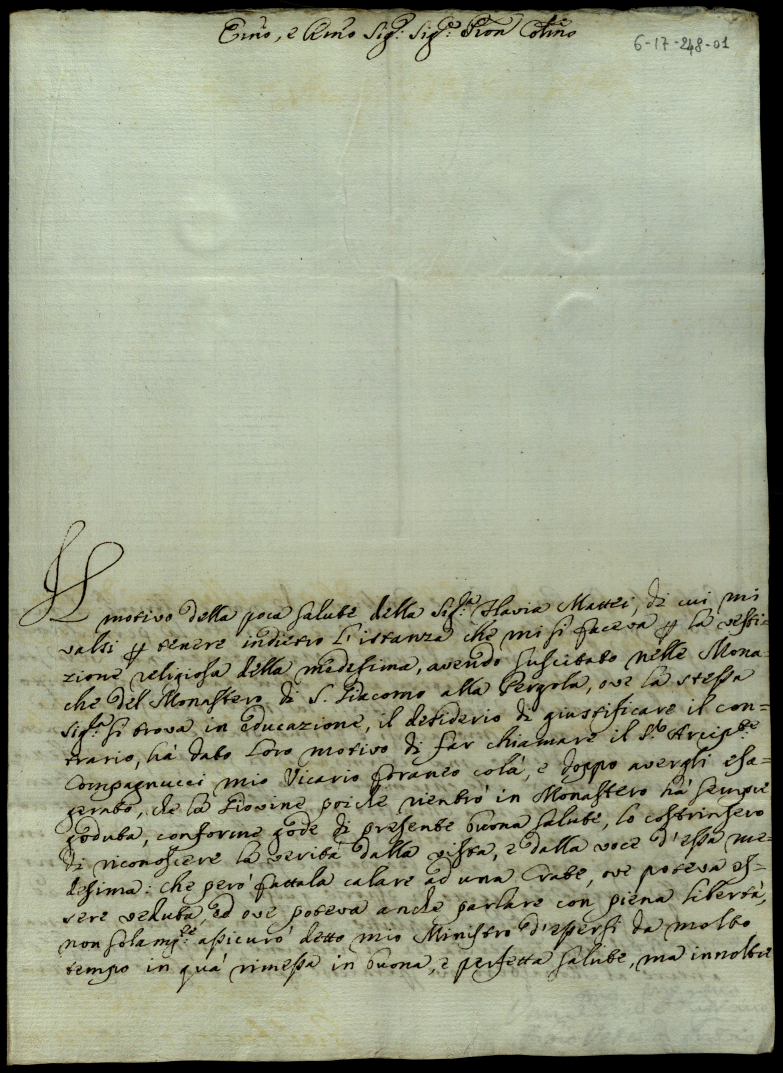 Emõ, e Rmõ Sig: Sig:e Pron Colmõ
6-17-248-01
Il motivo della poca salute della Sig:ra Flavia Mattei, di cui mi
valsi p tenere indietro l'istanza che mi si faceva p la vesti=
zione religiosa della medesima, avendo suscitato nelle Mona=
che del Monastero di S. Giacomo alla Pergola, ove la stessa
Sig:ra si trova in educazione, il desiderio di giustificare il con=
trario, hà dato loro motivo di far chiamare il S:r Arcip:te
Compagnucci mio Vicario foraneo colà, e doppo avergli esa=
gerato, che la Giovine poiche rientrò in Monastero hà sempre
goduta, conforme gode di presente buona salute, lo costrinsero
di riconoscere la verità dalla vista, e dalla voce d'essa me=
desima: che però fattala calare ad una Grate, ove poteva es=
sere veduta, ed ove poteva anche parlare con piena libertà,
non solam:te assicurò detto mio Ministro d'essersi da molto
tempo in quà rimessa in buona, e perfetta salute, ma innoltre